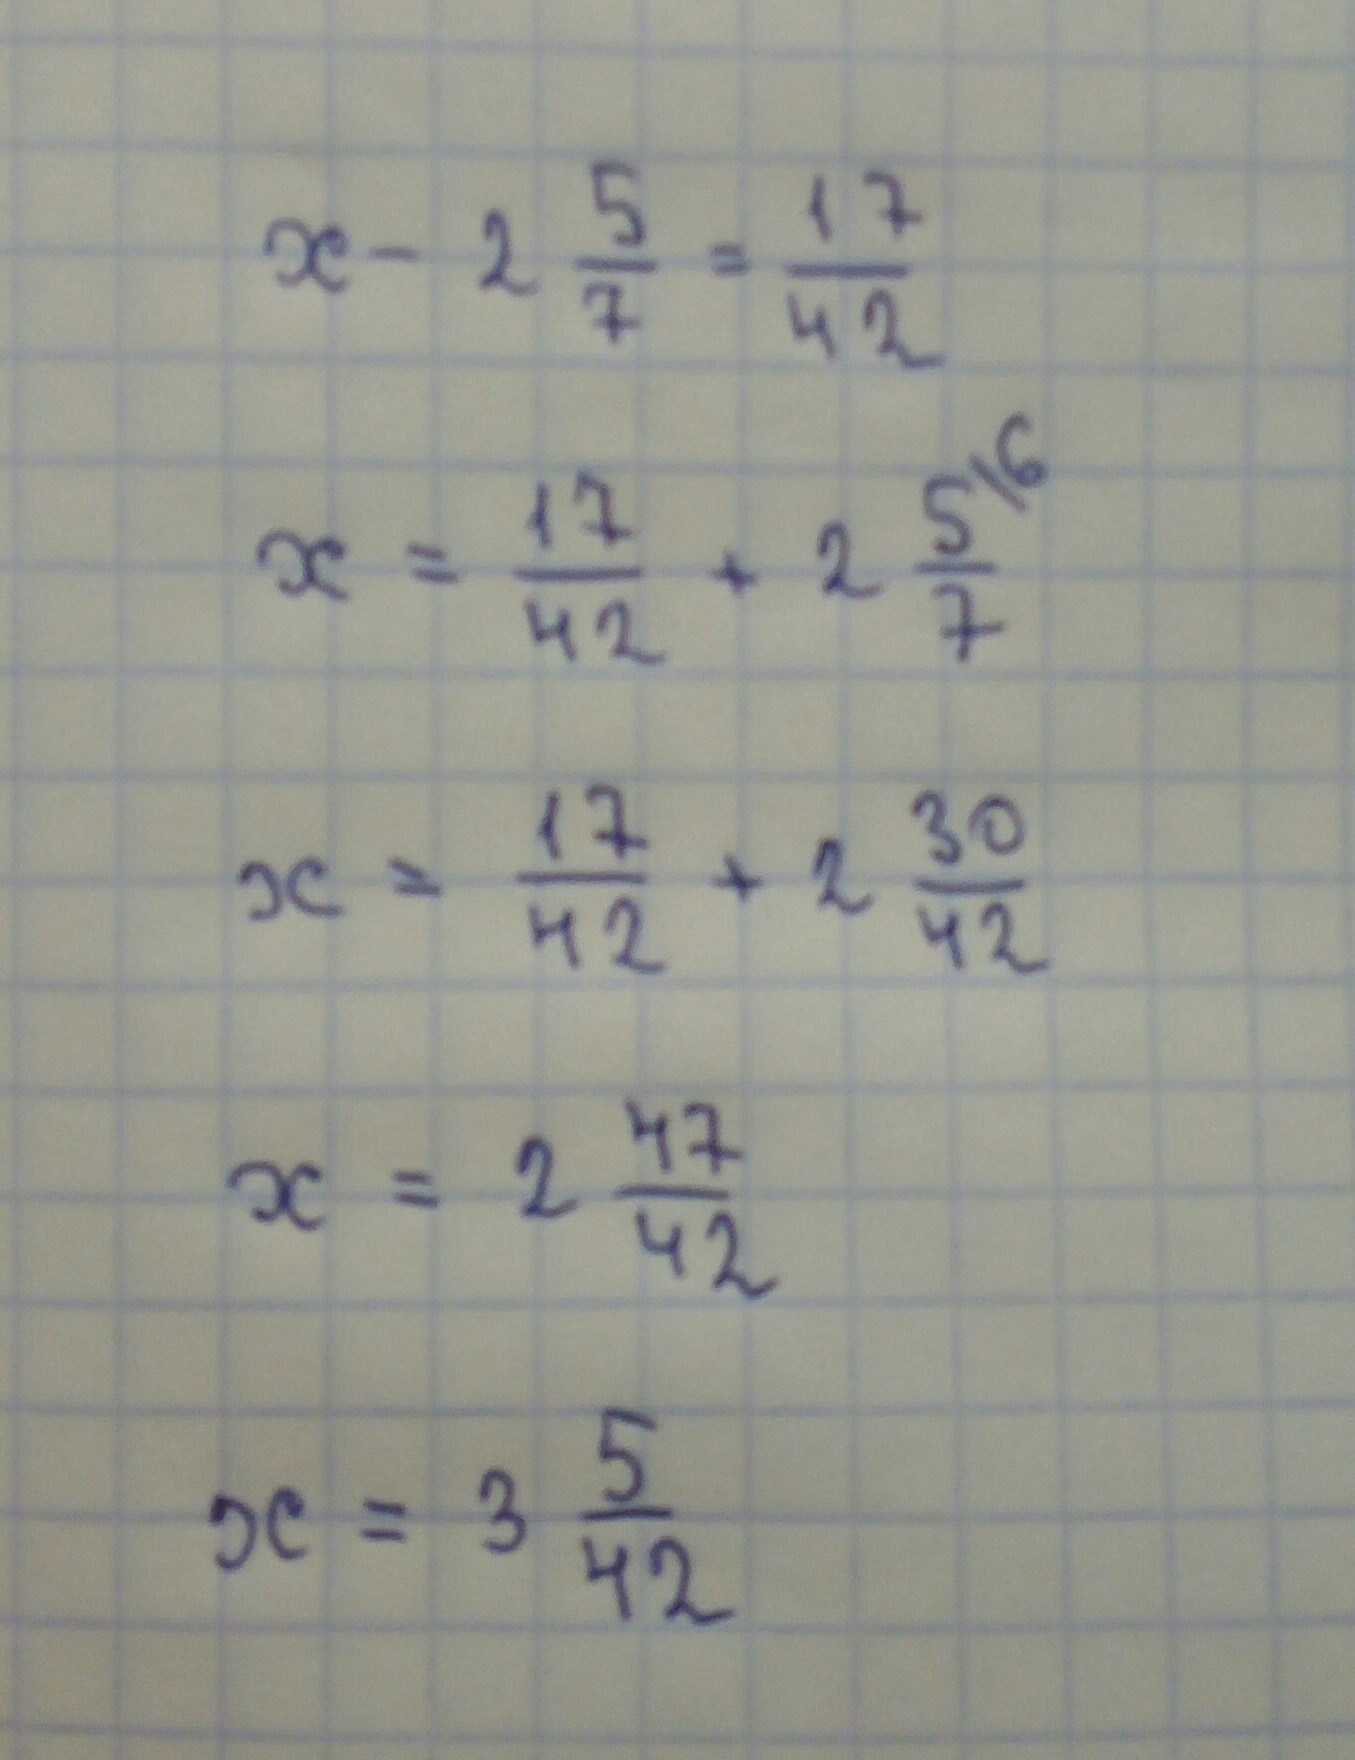 x - 2 5/7 = 17/42
x = 17/42 + 2 5/7 \6
x = 17/42 + 2 30/42
x = 2 47/42
x = 3 5/42